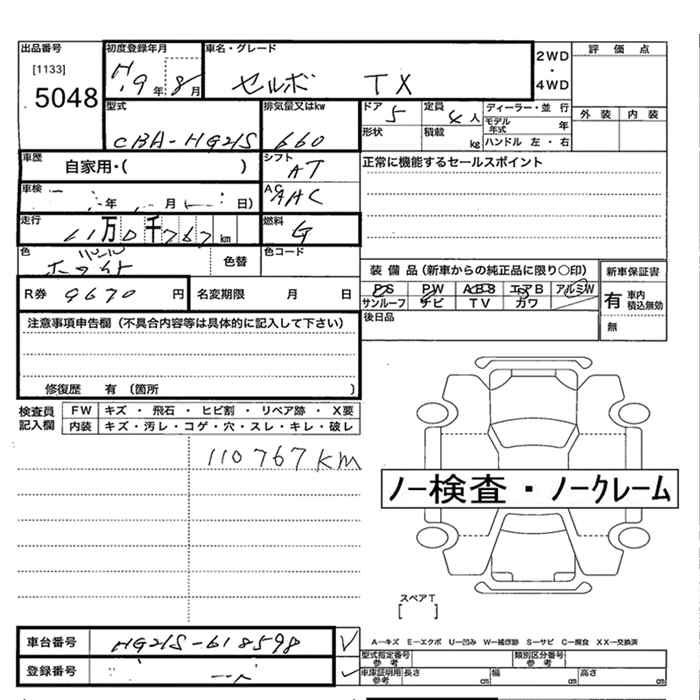 出品番号 [1133] 5048
初度登録年月 H.9年8月
車名・グレード セルボ TX
2WD・4WD
評価点
外装 内装
型式 CBA-HG21S
排気量又はkw 660
ドア 5
定員 4人
形状
積載 kg
ディーラー・並行
モデル年式 年
ハンドル 左・右
車歴 自家用・( )
シフト AT
正常に機能するセールスポイント
車検 年 月( 日)
AC AAC
走行 11万0千767km
燃料 G
色 ホワイト
色替
色コード
装備品(新車からの純正品に限り○印)
新車保証書
PS PW ABS エアB アルミW
サンルーフ ナビ TV カワ
有 車内積込無効
無
R券 9670円
名変期限 月 日
後日品
注意事項申告欄(不具合内容等は具体的に記入して下さい)
修復歴 有(箇所 )
検査員記入欄
FW キズ・飛石・ヒビ割・リペア跡・X要
内装 キズ・汚レ・コゲ・穴・スレ・キレ・破レ
110767km
ノー検査・ノークレーム
スペアT
[ ]
車台番号 HG21S-618598
登録番号
A―キズ E―エクボ U―凹み W―補修跡 S―サビ C―腐食 XX―交換済
型式指定番号 参考
類別区分番号 参考
車庫証明用 参考 長さ cm 幅 cm 高さ cm